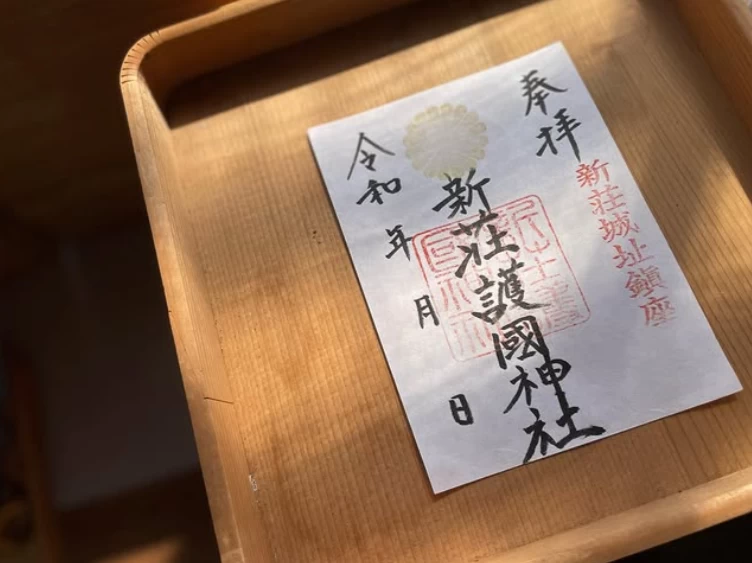 奉拝
新荘城址鎮座
新荘護國神社
令和 年 月 日